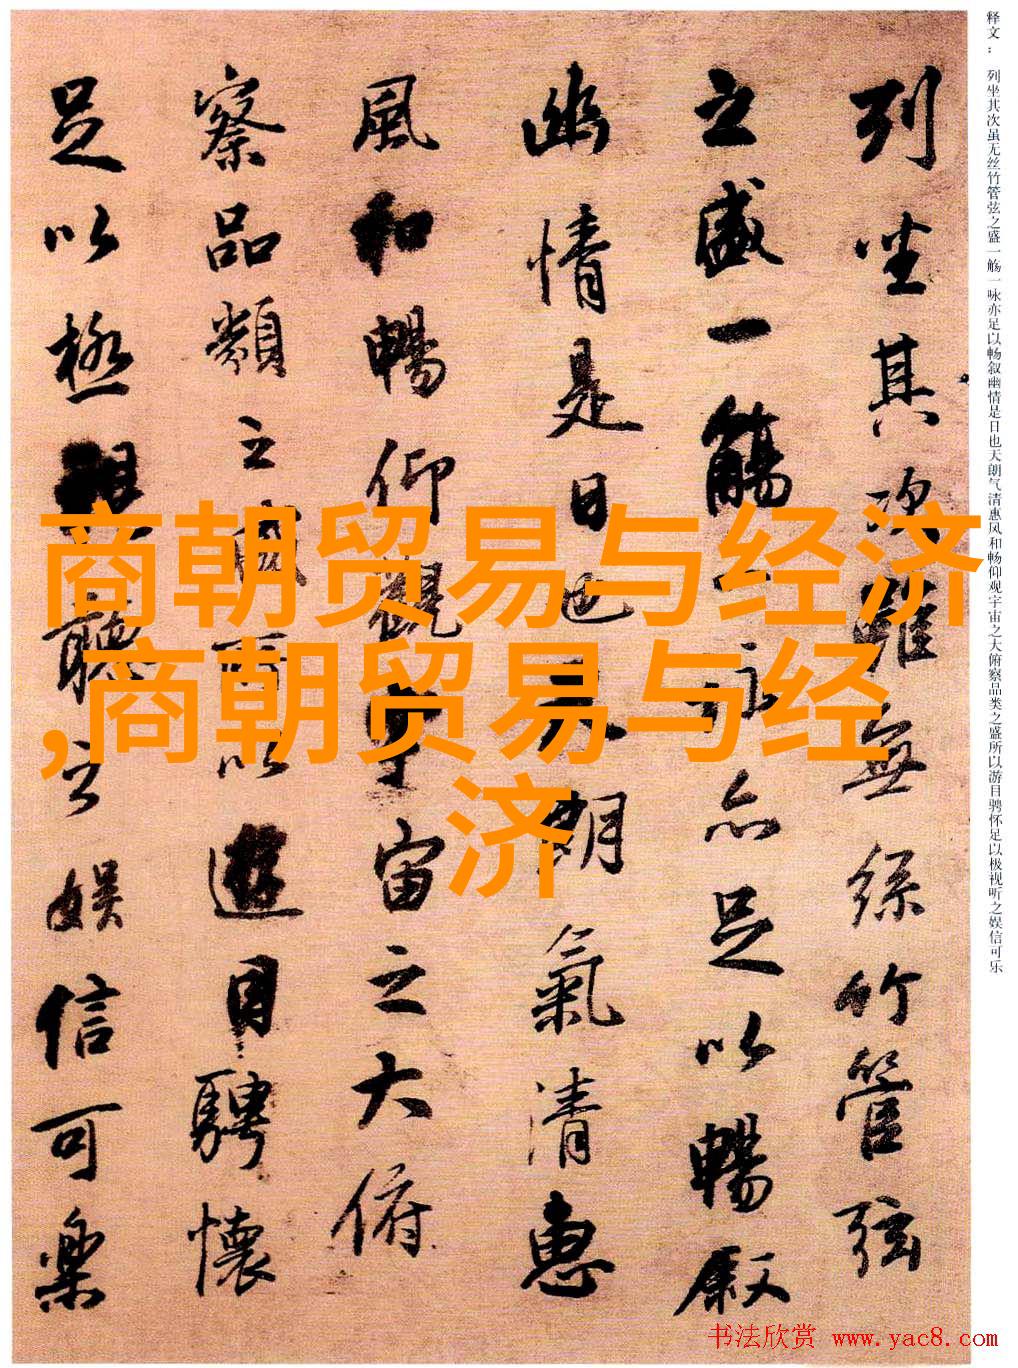 释文：列坐其次虽无丝竹管弦之盛一觞一咏亦足以畅叙幽情是日也天朗气清惠风和畅仰观宇宙之大俯察品类之盛所以游目骋怀足以极视听之娱信可乐
列坐其次雖無絲竹管弦
之盛一觴一詠亦足以暢叙
幽情是日也天朗氣清惠
風和暢仰觀宇宙之大俯
察品類之盛所以遊目騁懷
足以極視聽之娛信可樂
商朝贸易与经济
,商朝贸易与经
济
书法欣赏 www.yac8.com